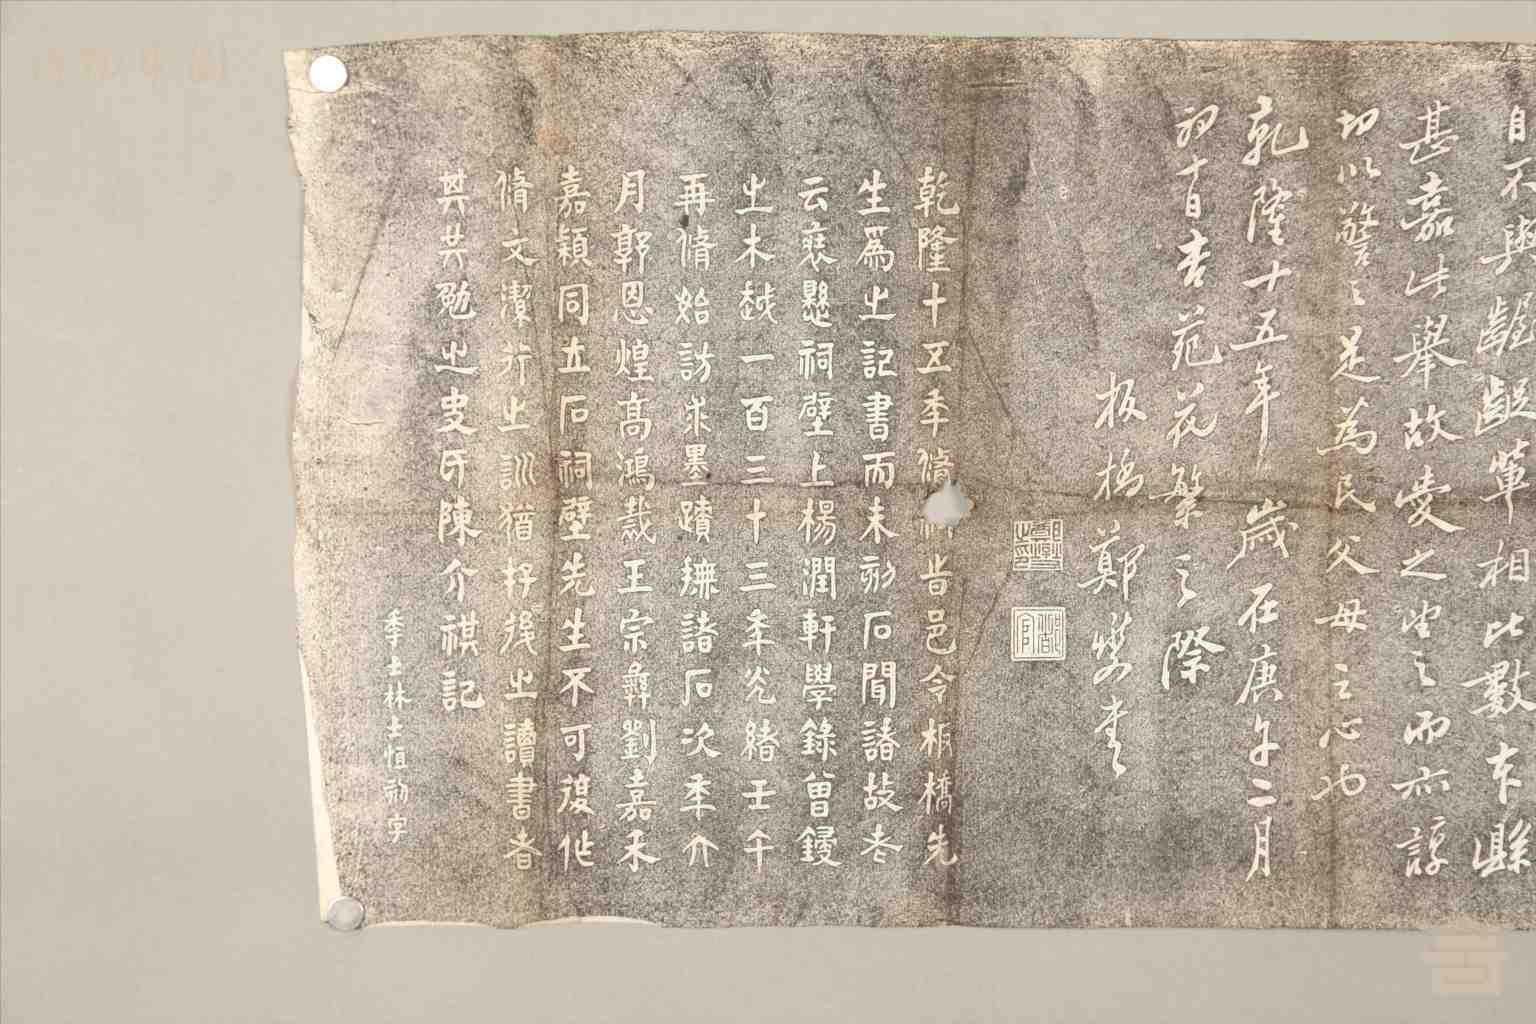 自不與齷齪輩相比數本縣
甚嘉此舉故愛之望之而亦諄
切以警之是為民父母之心也
乾隆十五年歲在庚午二月
初十日杏苑花繁之際
板橋鄭燮書
鄭燮之印
乾隆十五年脩祠時邑令板橋先
生爲之記書而未勒石聞諸故老
云裝懸祠壁上楊潤軒學錄曾鋟
之木越一百三十三年光緒壬午
再脩始訪求墨蹟摹諸石次年六
月郭恩煌高鴻裁王宗彝劉嘉禾
嘉穎同立石祠壁先生不可復作
脩文潔行之訓猶存後之讀書者
其共勉之史氏陳介祺記
季士林士恒刻字